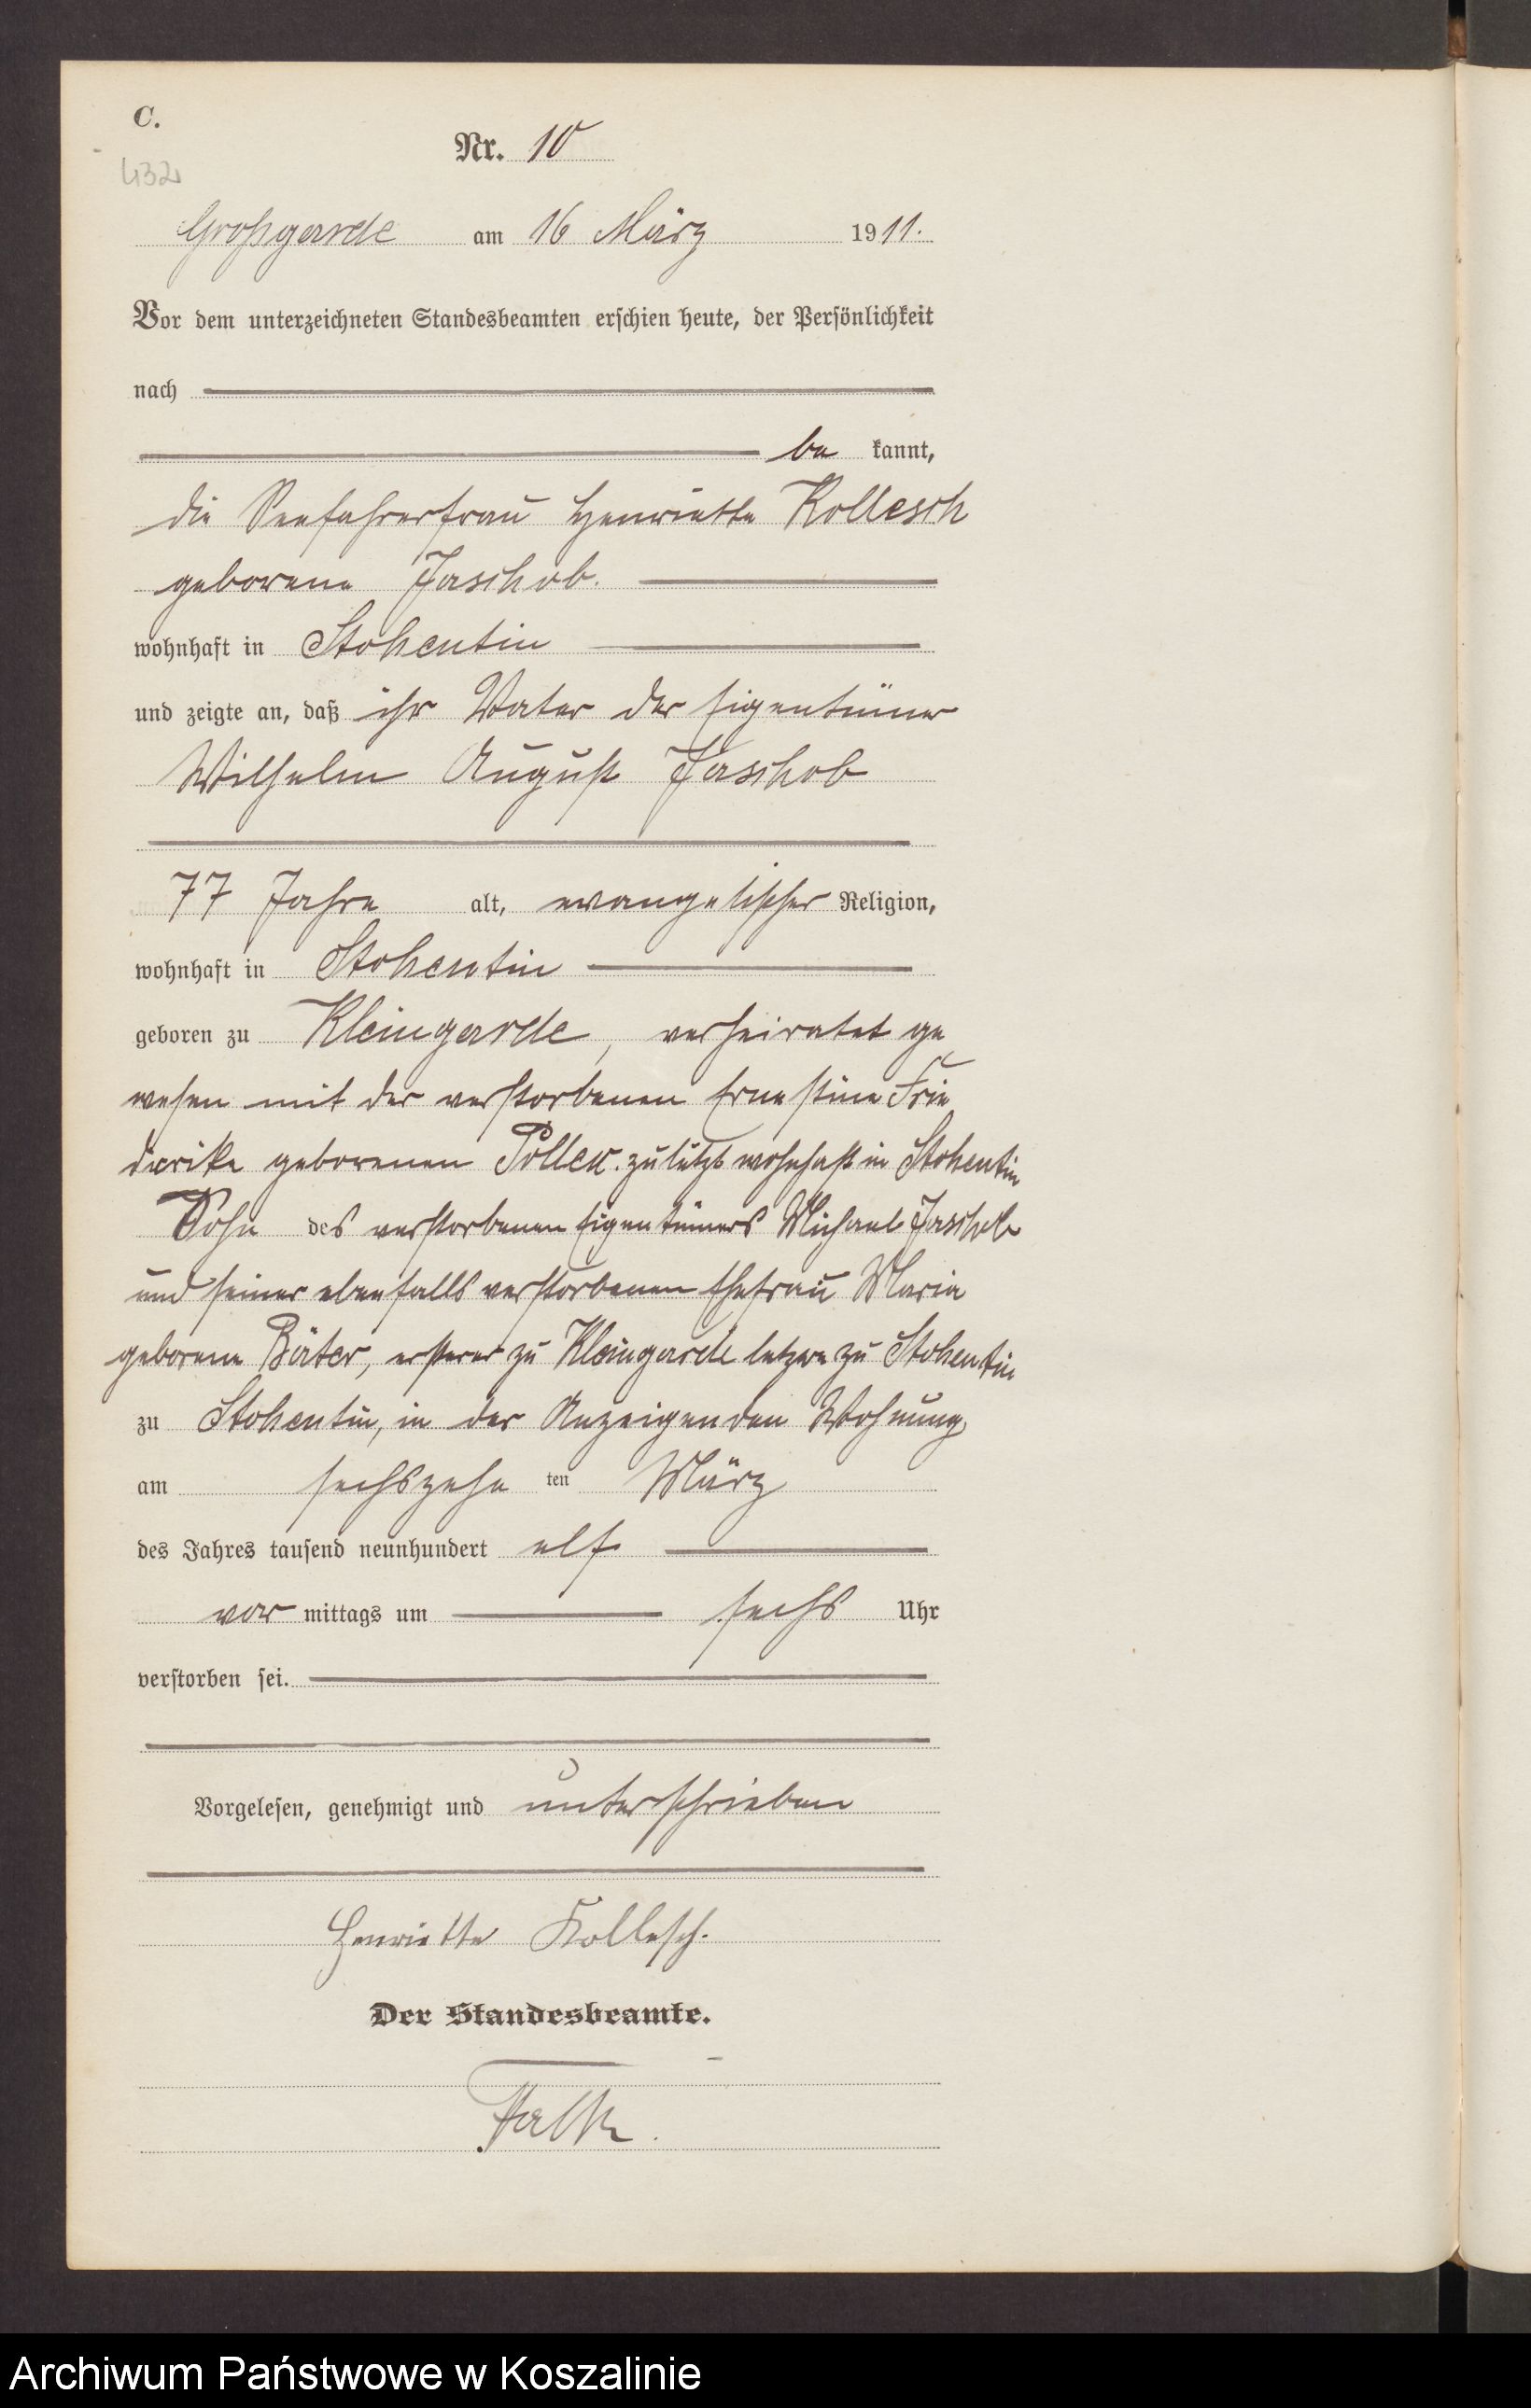 C.
432
Nr. 10
Großgarde am 16 März 1911.
Vor dem unterzeichneten Standesbeamten erschien heute, der Persönlichkeit
nach
be kannt,
die Seefahrerfrau Henriette Kollesch
geborene Jaschob.
wohnhaft in Stohentin
und zeigte an, daß ihr Vater der Eigentümer
Wilhelm August Jaschob
77 Jahre alt, evangelischer Religion,
wohnhaft in Stohentin
geboren zu Kleingarde, verheiratet ge
wesen mit der verstorbenen Ernestine Frie
derike geborenen Pollex. zuletzt wohnhaft in Stohentin
Sohn des verstorbenen Eigentümers Michael Jaschob
und seiner ebenfalls verstorbenen Ehefrau Maria
geborene Bäter, ersterer zu Kleingarde letzere zu Stohentin
zu Stohentin, in der Anzeigenden Wohnung
am sechszehn ten März
des Jahres tausend neunhundert elf
vor mittags um sechs Uhr
verstorben sei.
Vorgelesen, genehmigt und unterschrieben
Henriette Kollesch.
Der Standesbeamte.
Falk.
Archiwum Państwowe w Koszalinie